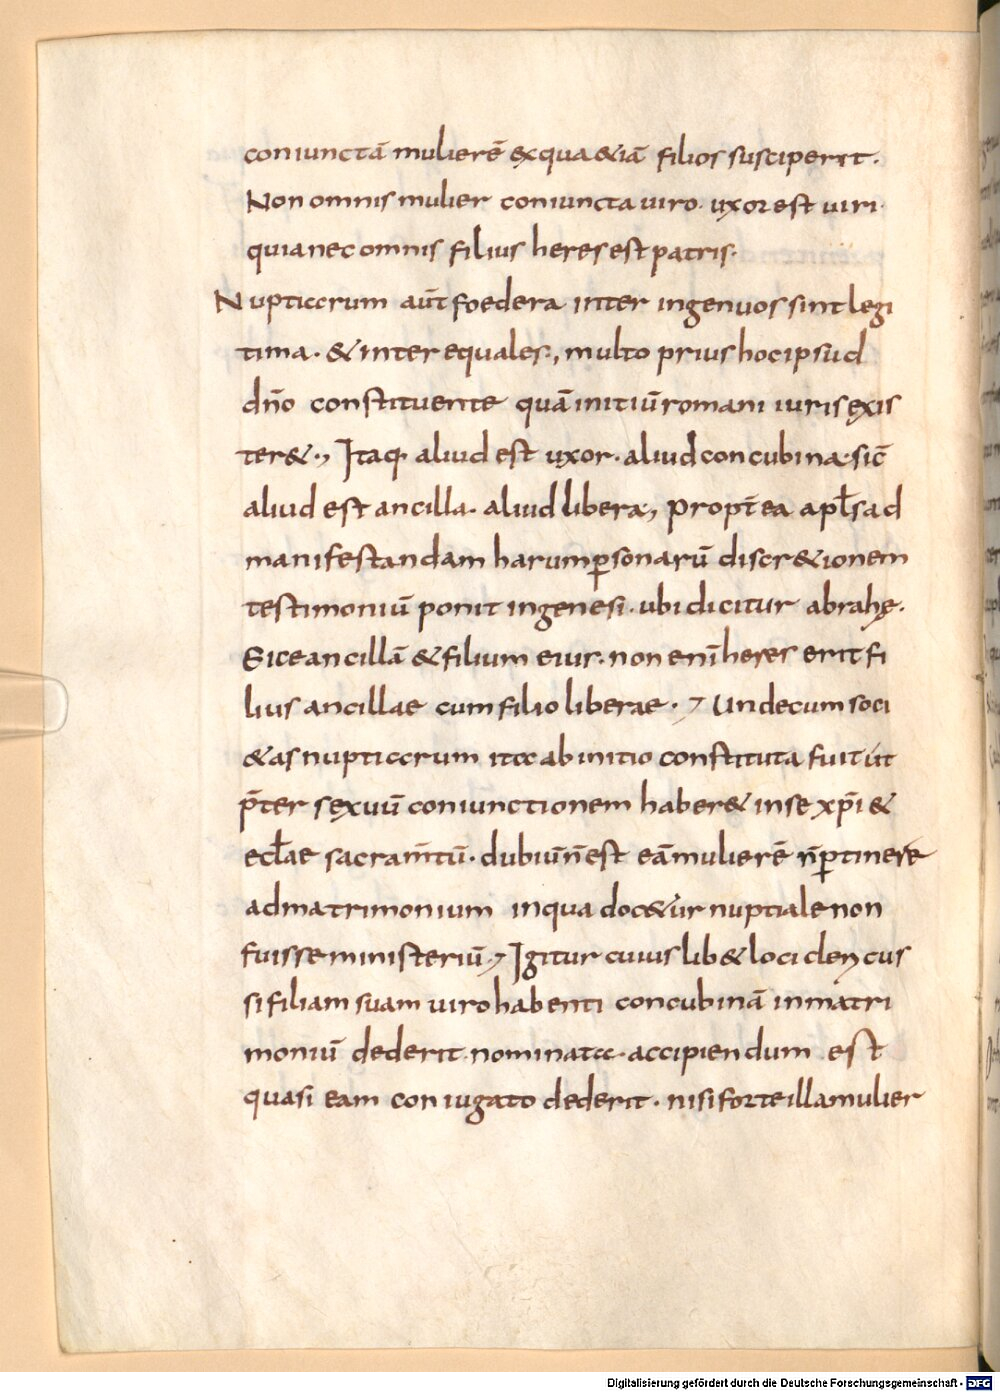 coniunctā mulierē exqua&iā filios susciperit.
Non omnis mulier coniuncta uiro. uxor est uiri.
quia nec omnis filius heres est patris.
Nuptiarum aūt foedera inter ingenuos sint legi
tima. & inter equales., multo prius hoc ipsud
dn̄o constituente quā initiū romani iuris exis
ter&., Itaq. aliud est uxor. aliud concubina. sic̄
aliud est ancilla. aliud libera, propt̄ea apłs ad
manifestandam harum ꝑsonarū discr&ionem
testimoniū ponit in genesi. ubi dicitur abrahę.
Eice ancillā & filium eius. non enī heres erit fi
lius ancillae cum filio liberae., Unde cum soci
&as nuptiarum ita ab initio constituta fuit út
p̄ter sexuū coniunctionem haber& in se xp̄i &
eccłae sacram̄tū. dubiū n̄ est eā mulierē n̄ ꝑtinere
ad matrimonium in qua doc&ur nuptiale non
fuisse ministeriū., Igitur cuius lib& loci clericus
si filiam suam uiro habenti concubinā in matri
moniū dederit. nominata. accipiendum est
quasi eam coniugato dederit. nisi forte illa mulier
Digitalisierung gefördert durch die Deutsche Forschungsgemeinschaft - DFG